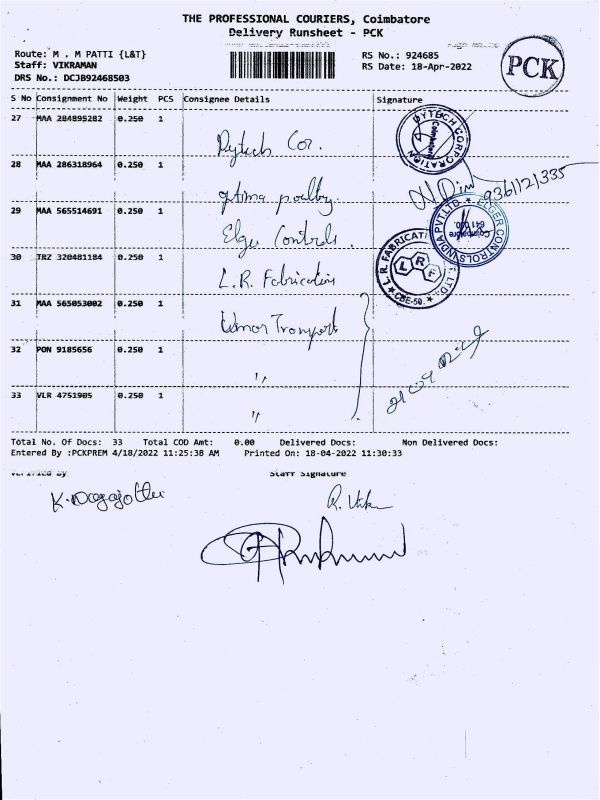 THE PROFESSIONAL COURIERS, Coimbatore
Delivery Runsheet - PCK
Route: M . M PATTI {L&T}
Staff: VIKRAMAN
DRS No.: DCJB92468503
RS No.: 924685
RS Date: 18-Apr-2022
PCK
S No Consignment No Weight PCS Consignee Details Signature
27 MAA 284895282 0.250 1 Dytech Cor.
DYTECH CORPORATION
Coimbatore
28 MAA 286318964 0.250 1 optima poultry.
9361121335
29 MAA 565514691 0.250 1 Elger Controls.
ELGER CONTROLS INDIA PVT.LTD
Coimbatore
30 TRZ 320481184 0.250 1 L.R. Fabrication
L.R. FABRICATI LTD.
LRF
CBE-50.
31 MAA 565053002 0.250 1 Transport
32 PON 9185656 0.250 1 ''
33 VLR 4751905 0.250 1 ''
Total No. Of Docs: 33 Total COD Amt: 0.00 Delivered Docs: Non Delivered Docs:
Entered By :PCKPREM 4/18/2022 11:25:38 AM Printed On: 18-04-2022 11:30:33
Verified By Staff Signature